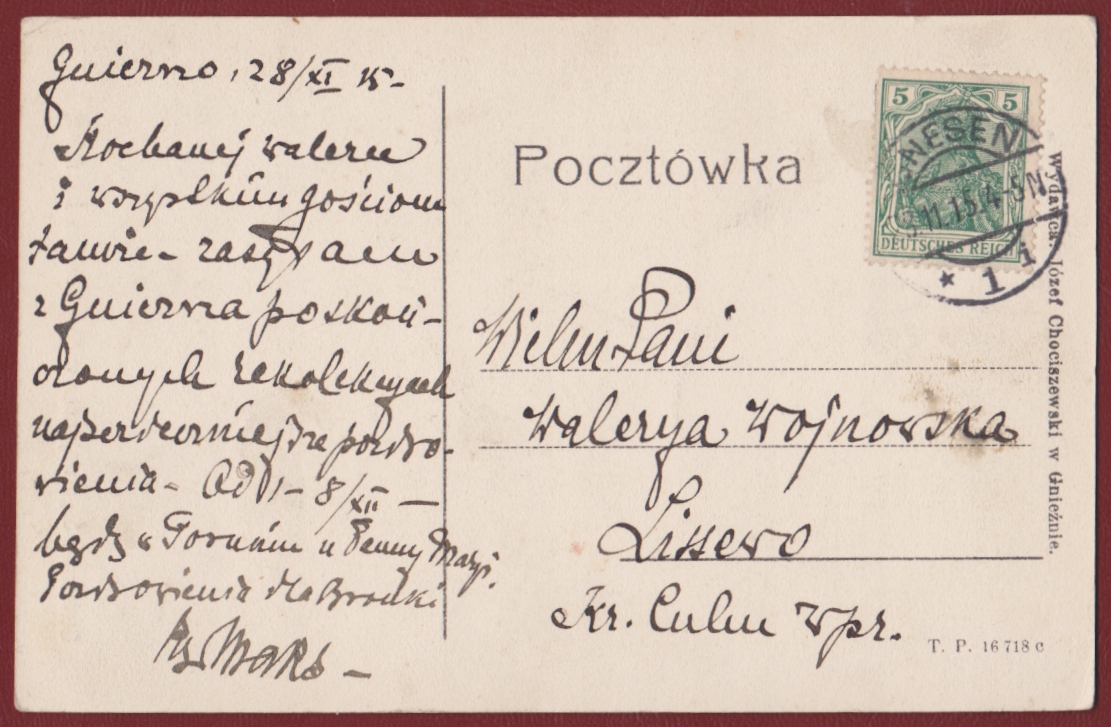 Gniezno, 28/XI 15-
Kochanej Waleree
i wszystkim gościom
zasyłam
z Gniezna poskoń-
czonych rekolekcyach
najserdeczniejsze pozdro-
wienia- Od 1- 8/XII —
będę w Toruniu u Panny Maryi.
Pozdrowienia dla Bronki
Ks Maks-
Pocztówka
5 5
GNESEN
11.15.4-5N
DEUTSCHES REICH
* 1 i
Wielm Pani
Walerya Wojnowska
Lissewo
Kr. Culm Wpr.
Wydawca: Józef Chociszewski w Gnieźnie.
T. P. 16718 c